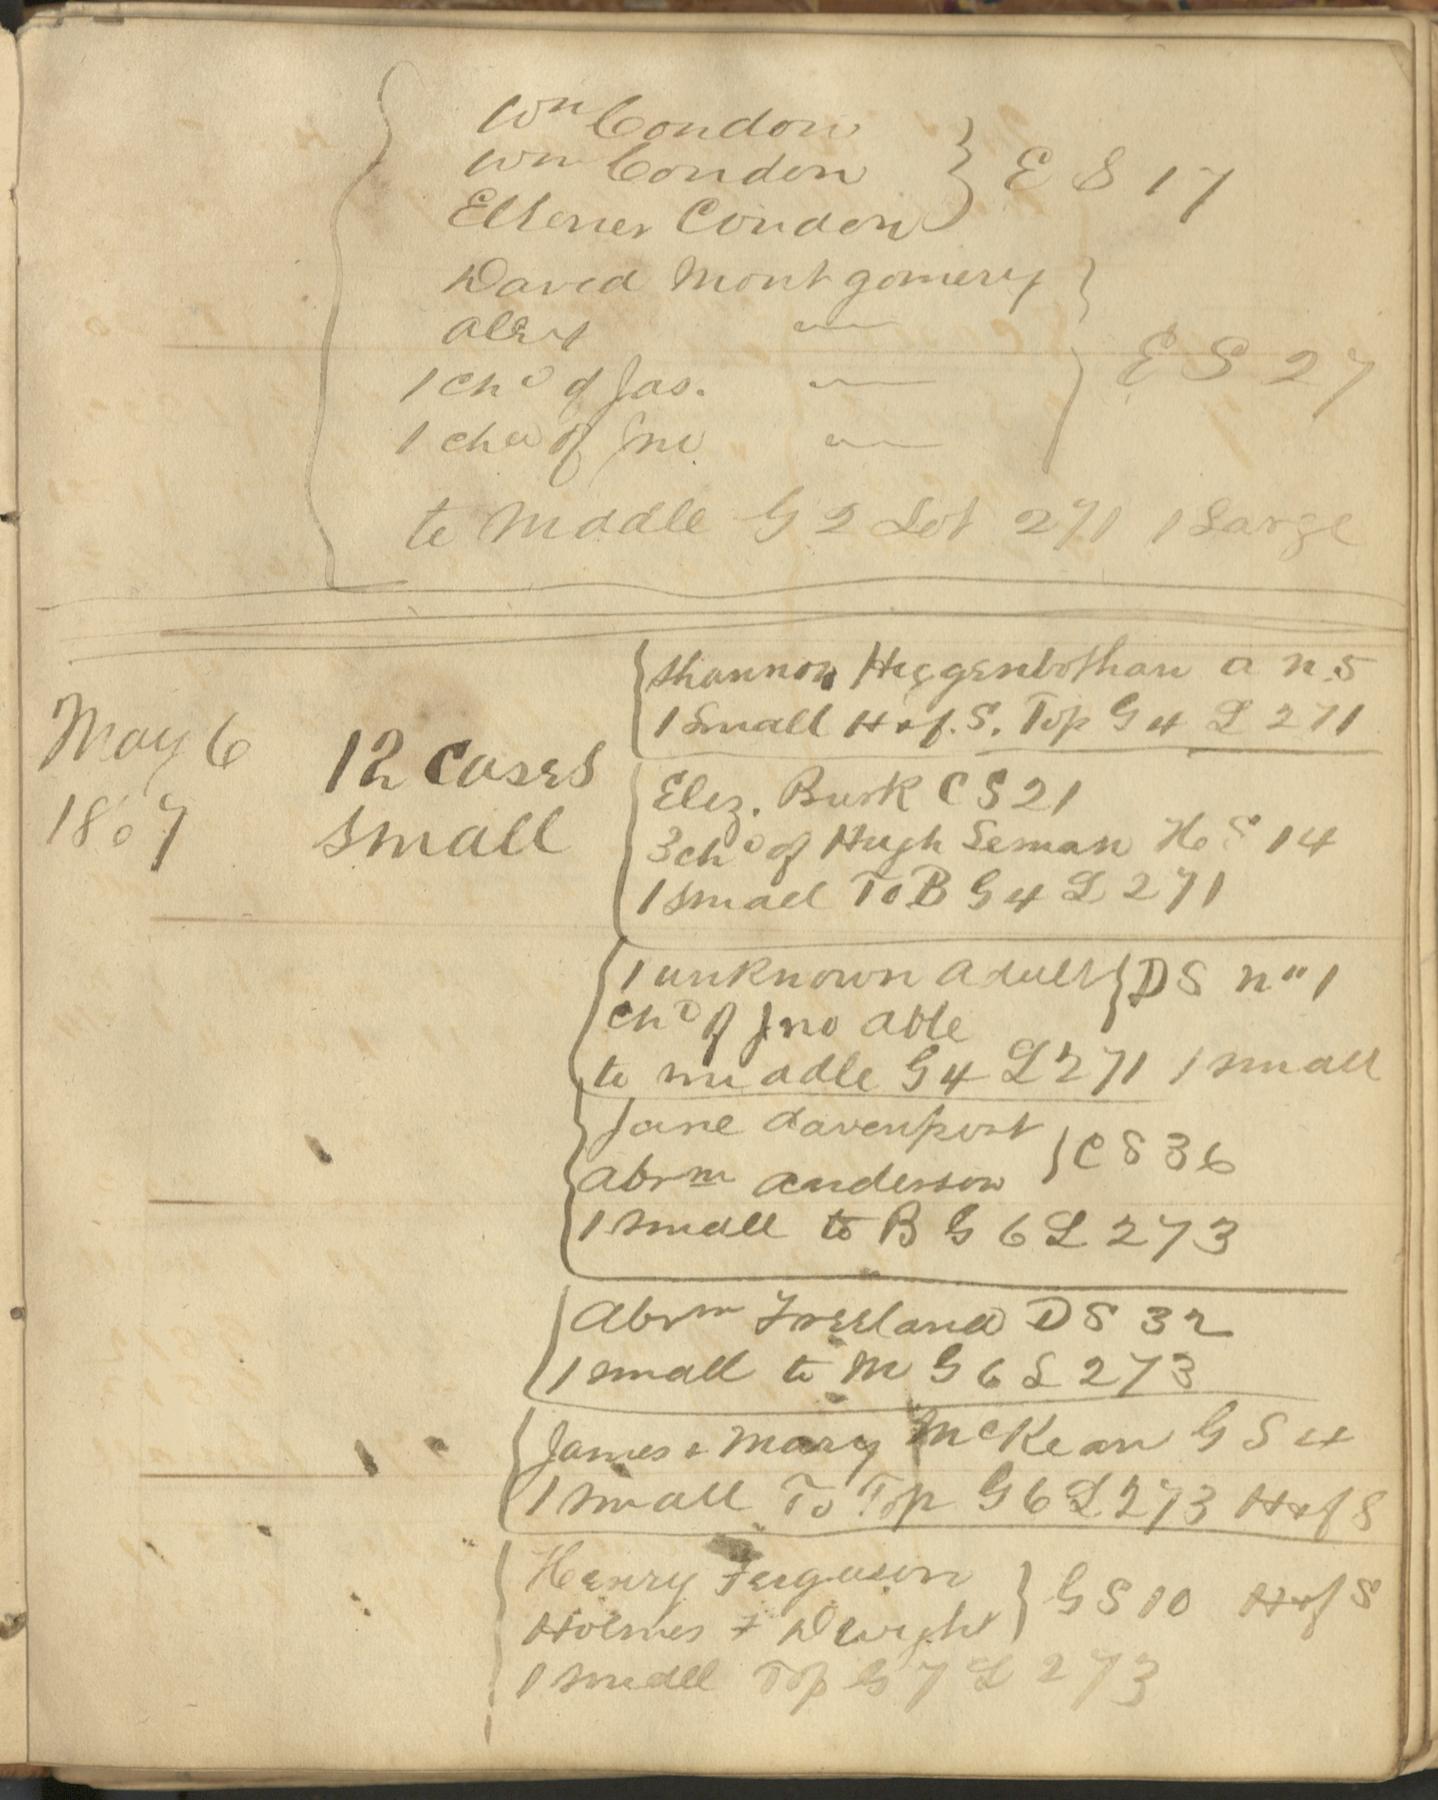 Wm Condon
Wm Condon } E S 17
Ellener Condon
David Montgomery
Alex " } E S 27
1 chd of Jas. "
1 chd of Jno "
to Middle G 2 Lot 271 1 Large
May 6
1867
12 Cases
small
Shannon Higgenbothan a n 5
1 Small H of S. Top G 4 L 271
Eliz. Burk C S 21
3 chd of Hugh Seman H S 14
1 small To B G 4 L 271
1 unknown adult } D S no 1
chd of Jno Able
to middle G 4 L 271 1 small
Jane Davenport
Abrm Anderson } C S 36
1 small to B G 6 L 273
Abrm Freeland D S 32
1 small to M G 6 L 273
James & Mary McKean G S 4
1 small To Top G 6 L 273 H of S
Henry Ferguson
Holmes & Dwight } G S 10 H of S
1 small Top G 7 L 273